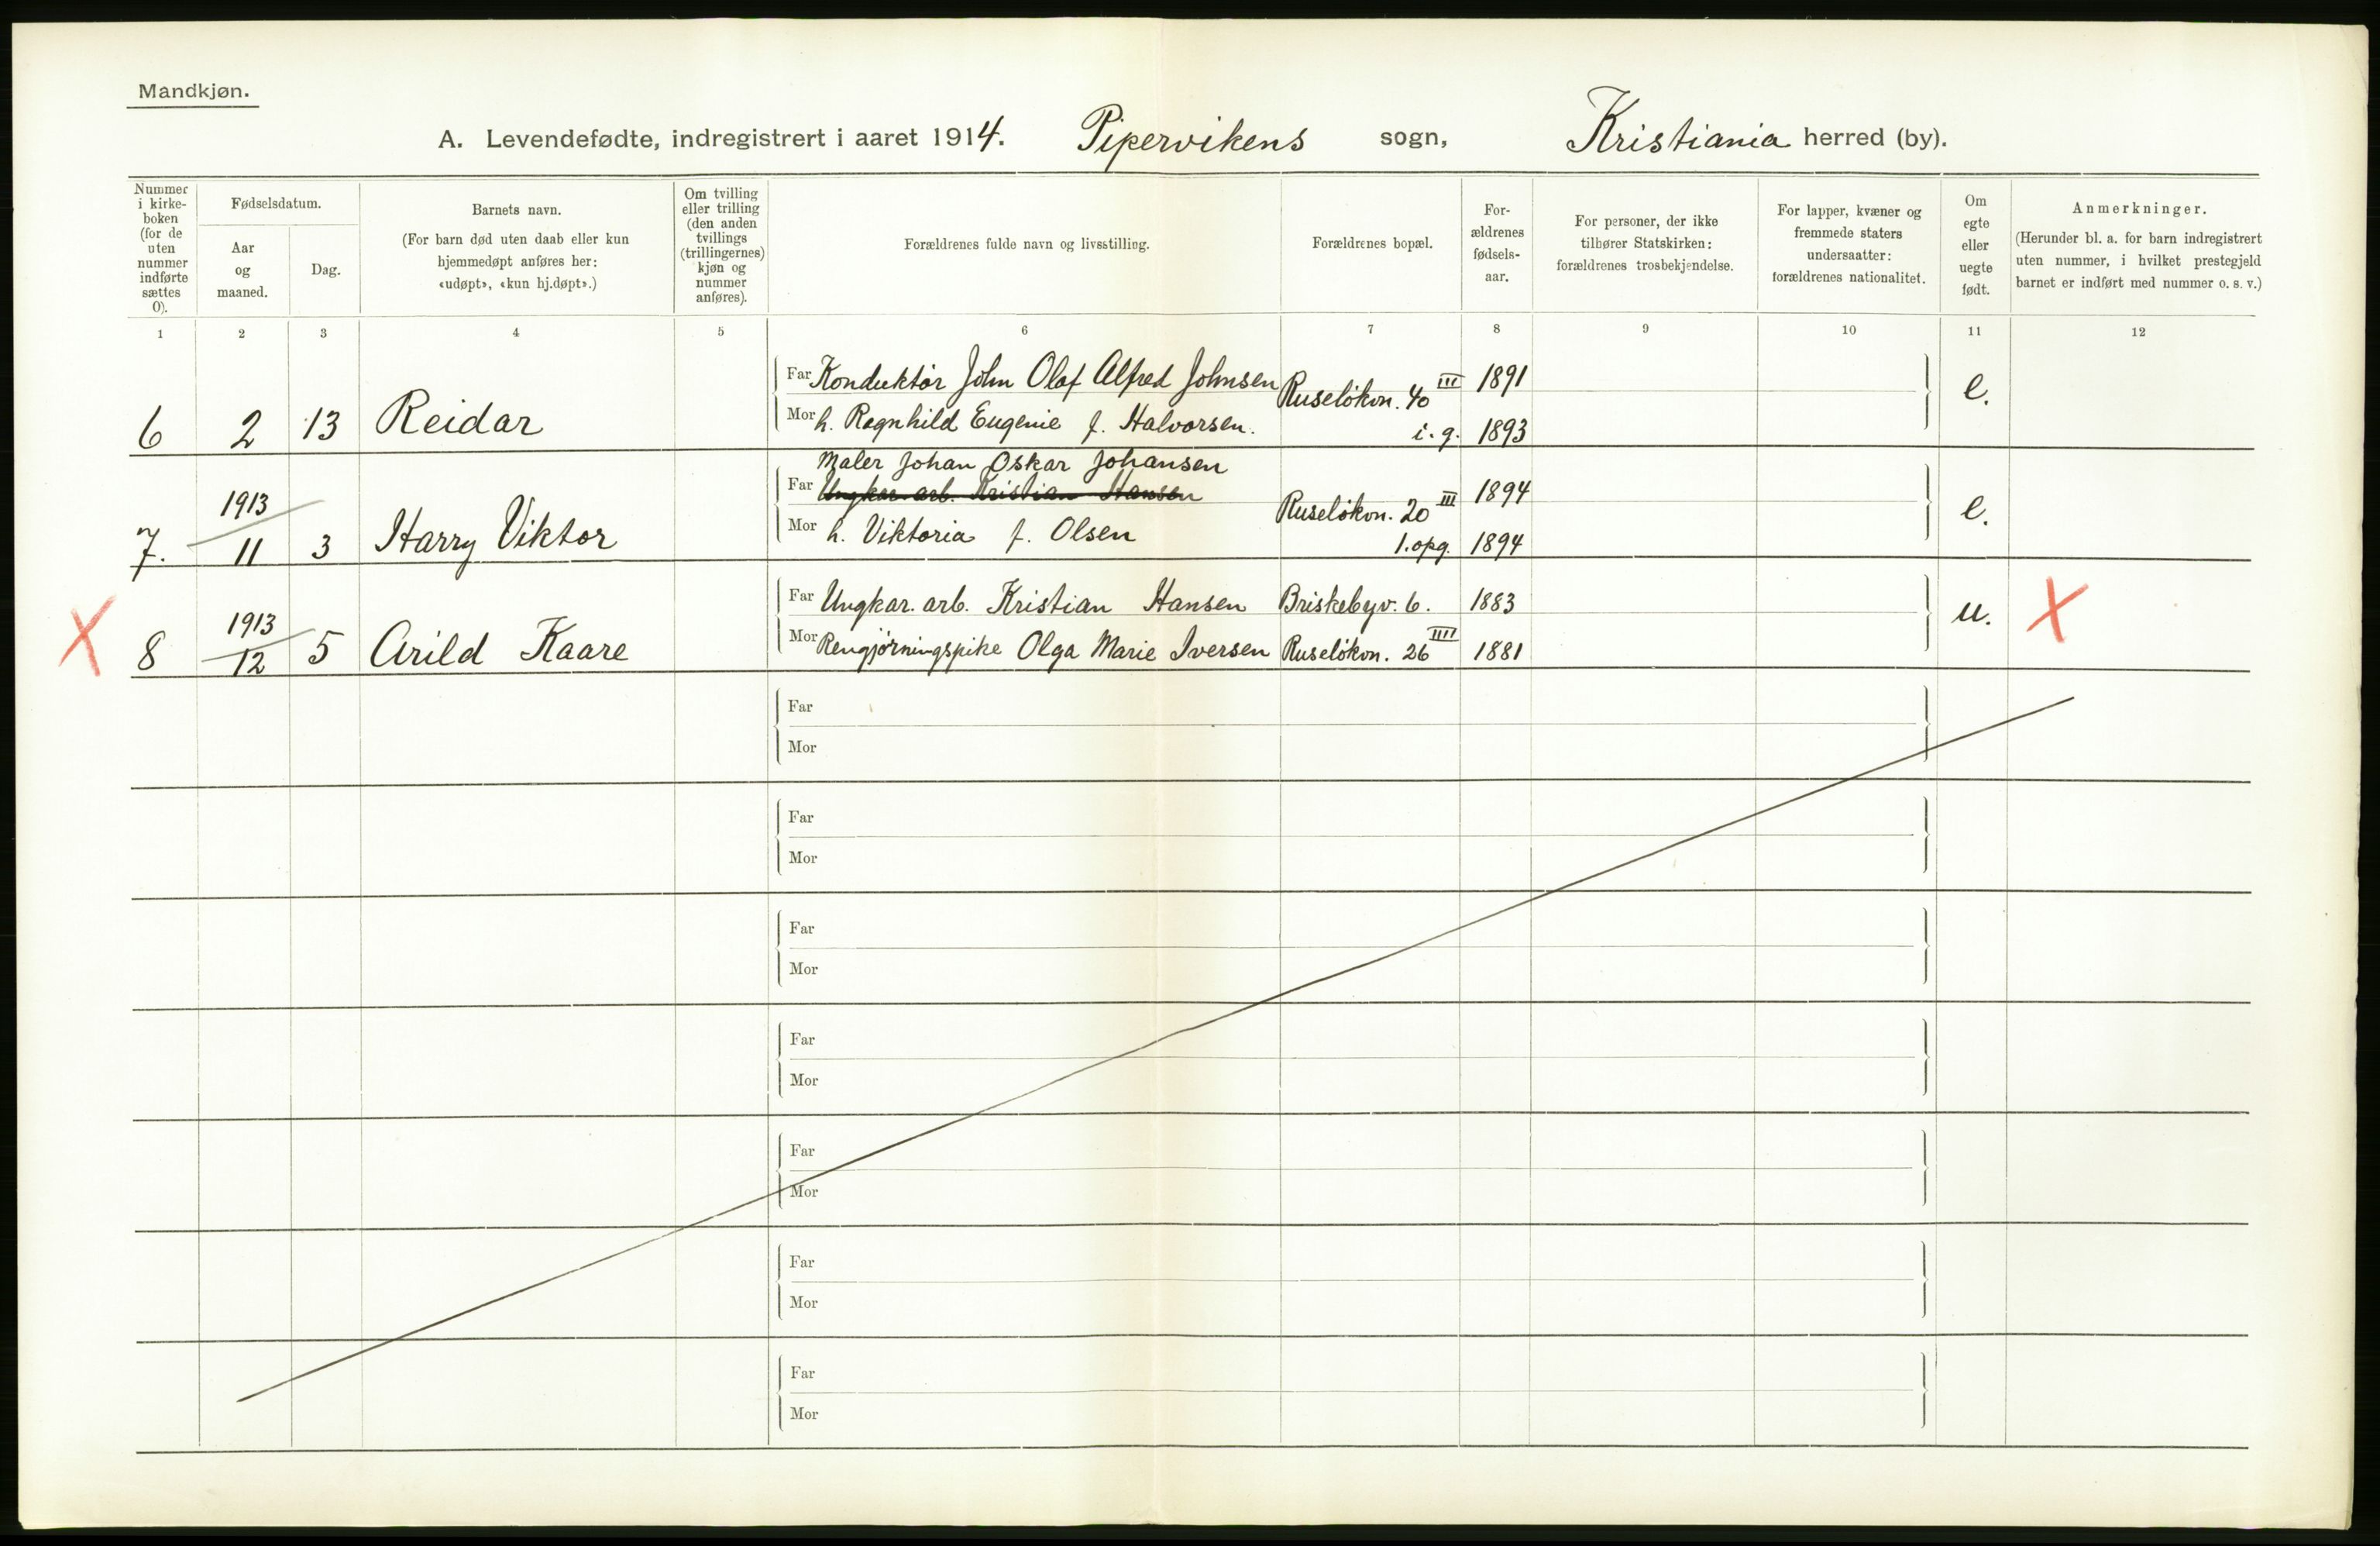 Mandkjøn.
A. Levendefødte, indregistrert i aaret 1914. Pipervikens sogn, Kristiania herred (by).
Nummer i kirke-boken (for de uten nummer indførte sættes 0).
Fødselsdatum.
Aar og maaned.
Dag.
Barnets navn.
(For barn død uten daab eller kun hjemmedøpt anføres her: «udøpt», «kun hj.døpt».)
Om tvilling eller trilling (den anden tvillings (trillingernes) kjøn og nummer anføres).
Forældrenes fulde navn og livsstilling.
Forældrenes bopæl.
For-ældrenes fødsels-aar.
For personer, der ikke tilhører Statskirken: forældrenes trosbekjendelse.
For lapper, kvæner og fremmede staters undersaatter: forældrenes nationalitet.
Om egte eller uegte født.
Anmerkninger.
(Herunder bl. a. for barn indregistrert uten nummer, i hvilket prestegjeld barnet er indført med nummer o. s. v.)
1 2 3 4 5 6 7 8 9 10 11 12
Far Konduktør John Olaf Alfred Johnsen Ruseløkvn. 40 III 1891 e.
6 2 13 Reidar Mor h. Ragnhild Eugenie f. Halvorsen. i. g. 1893
Maler Johan Oskar Johansen
1913 Far Ungkar arb. Kristian Hansen Ruseløkvn. 20 III 1894 e.
7. 11 3 Harry Viktor Mor h. Viktoria f. Olsen 1. opg. 1894
1913 Far Ungkar. arb. Kristian Hansen Briskebyv. 6. 1883 u. X
X 8 12 5 Arild Kaare Mor Rengjørningspike Olga Marie Iversen Ruseløkvn. 26 IIII 1881
Far
Mor
Far
Mor
Far
Mor
Far
Mor
Far
Mor
Far
Mor
Far
Mor